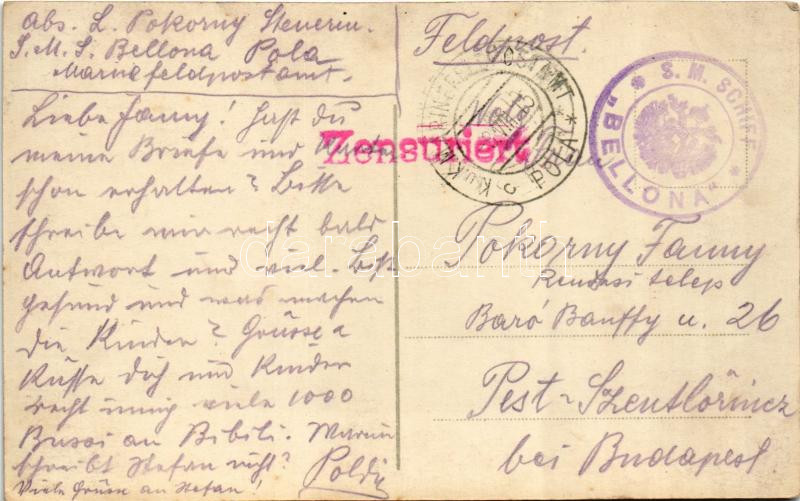 Abs. L. Pokorny Steuerm.
S. M. S. Bellona Pola
Marinefeldpostamt.
Feldpost.
Liebe Fanny! Hast du
meine Briefe und
schon erhalten? Bitte
schreibe mir recht bald
Antwort und viel. Bist
gesund und was machen
die Kinder? Grüsse u
Küsse dich und Kinder
recht innig viele 1000
Bussi an Bibili. Warum
schreibt Stefan nicht?
Poldi
Viele Grüsse an Stefan!
Zensuriert
POLA
S. M. SCHIFF
"BELLONA"
Pokorny Fanny
Rendesi telep
Baró Banffy u. 26
Pest-Szentlörincz
bei Budapest
darabanth